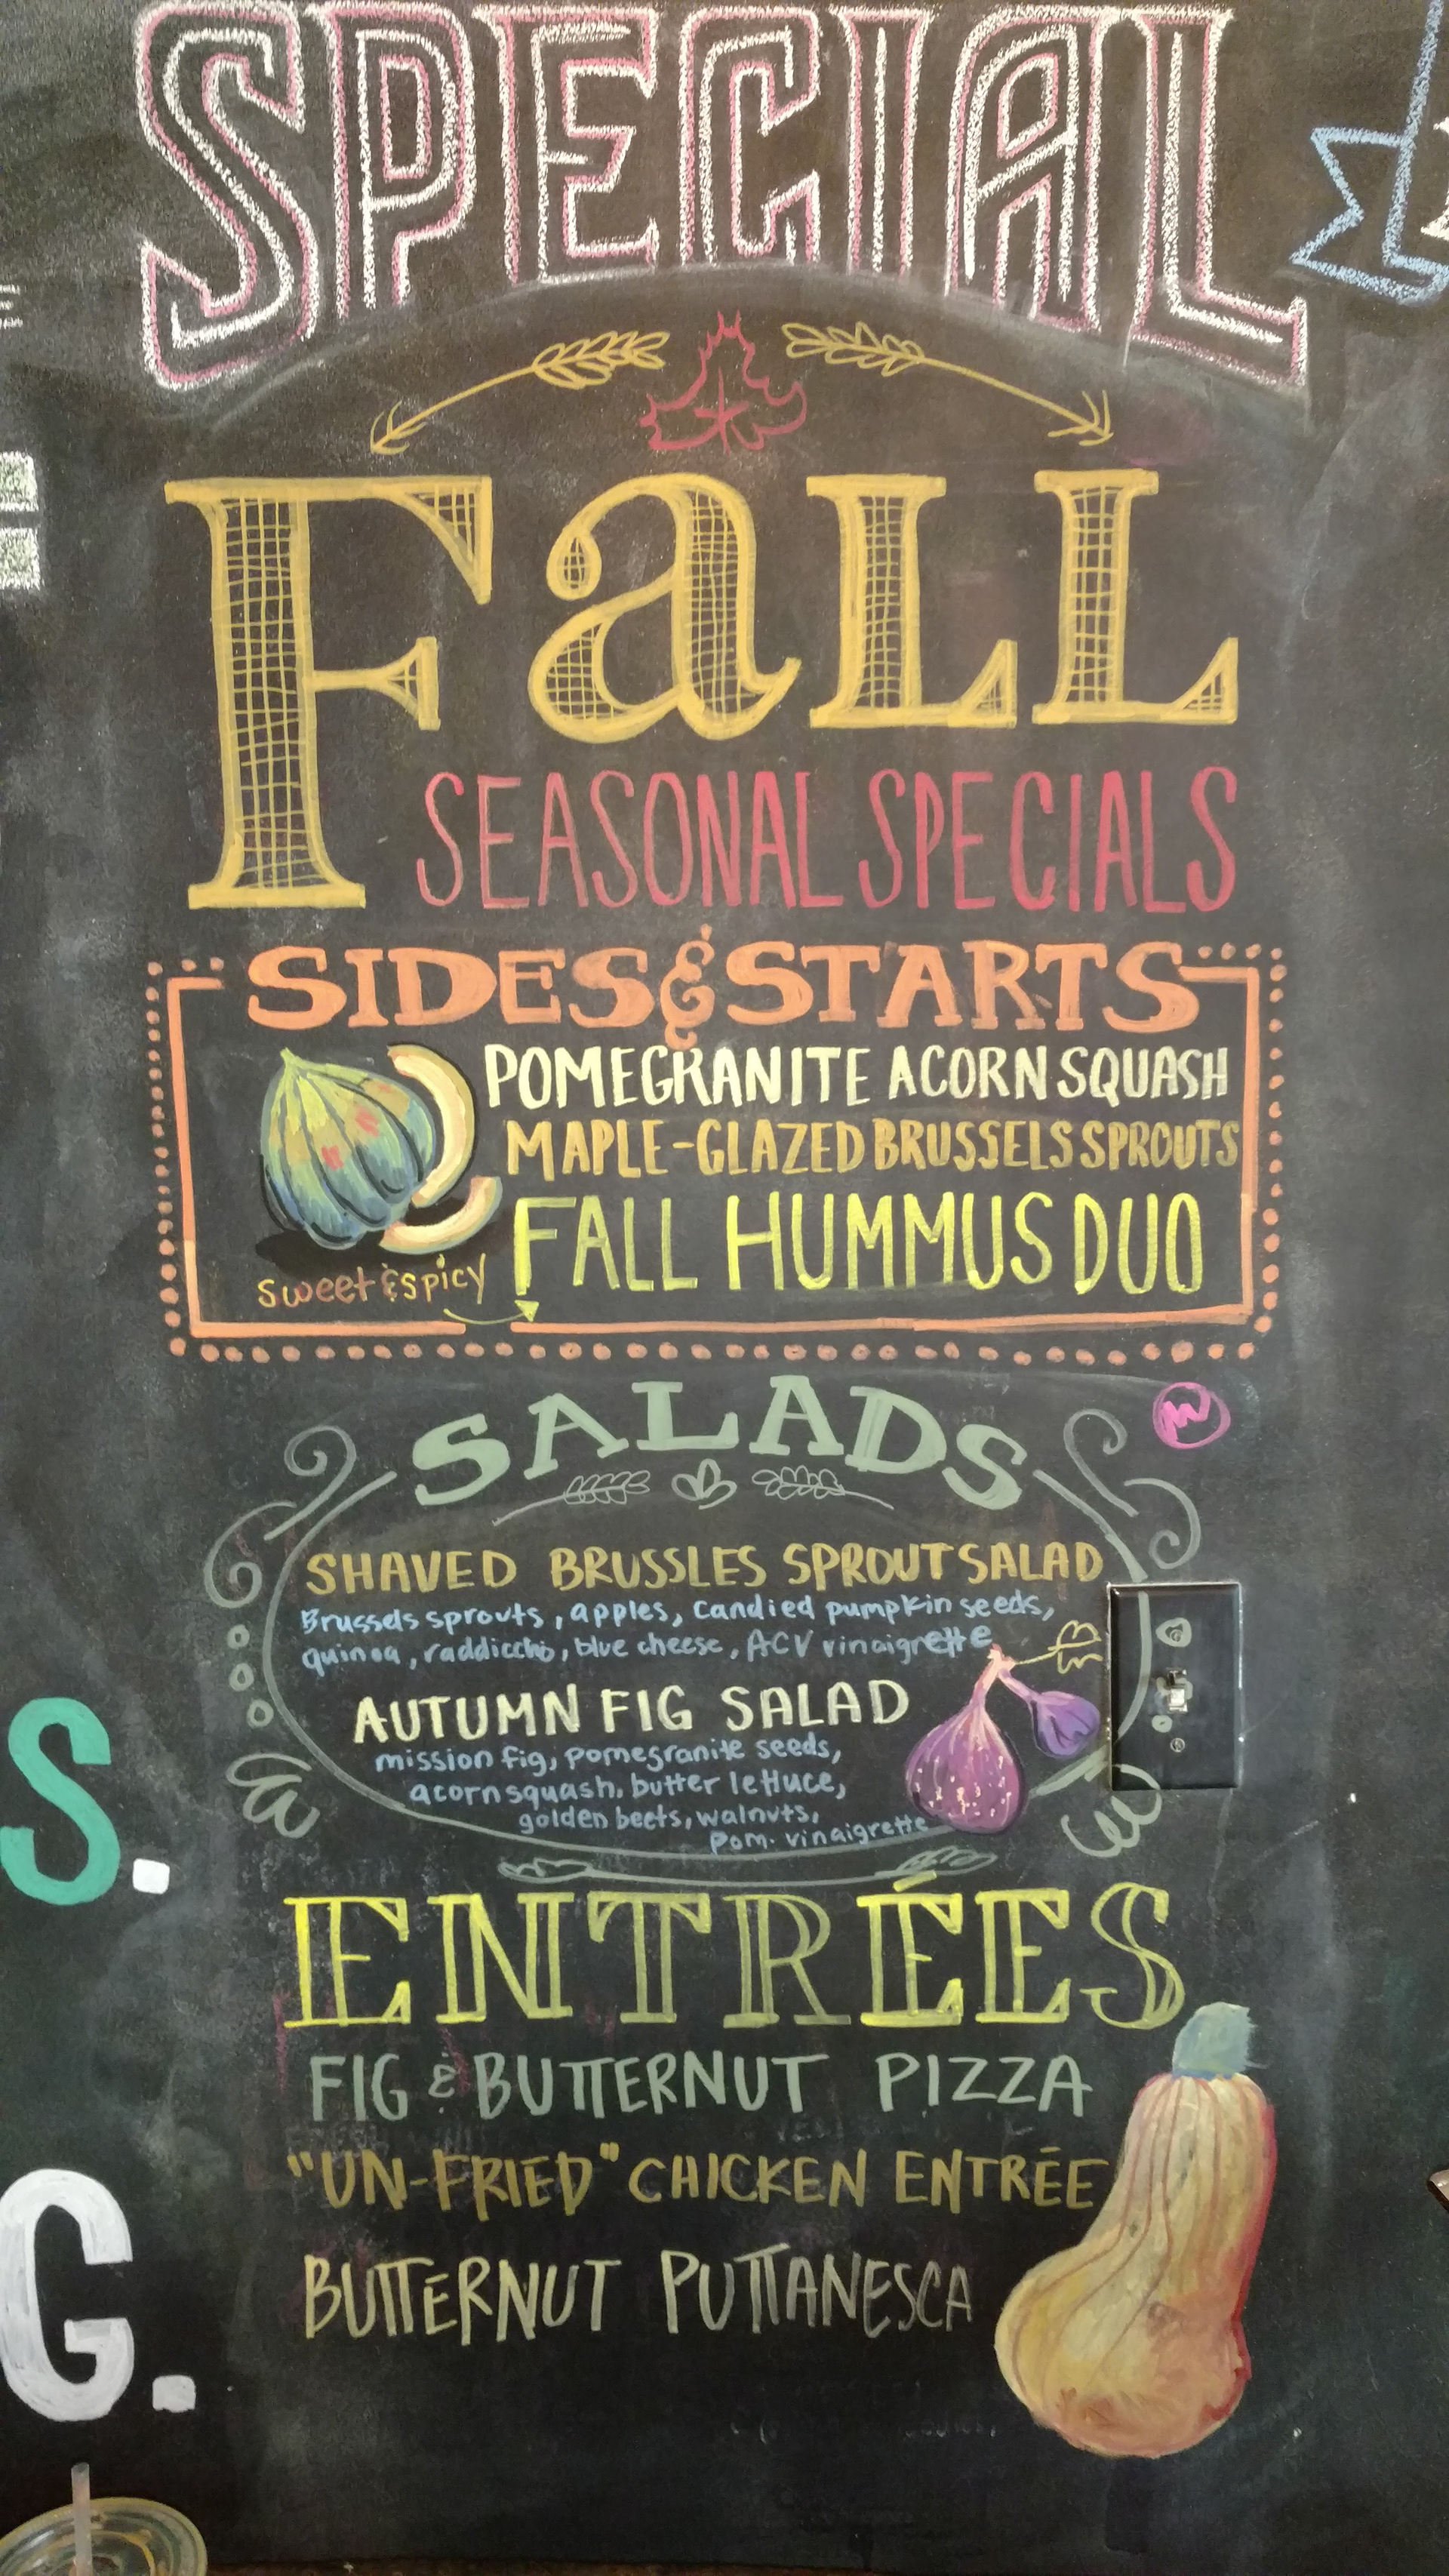 SPECIAL
FaLL
SEASONAL SPECIALS
SIDES & STARTS
POMEGRANITE ACORN SQUASH
MAPLE-GLAZED BRUSSELS SPROUTS
FALL HUMMUS DUO
sweet & spicy
SALADS
SHAVED BRUSSLES SPROUT SALAD
Brussels sprouts, apples, candied pumpkin seeds,
quinoa, raddiccho, blue cheese, ACV vinaigrette
AUTUMN FIG SALAD
mission fig, pomegranite seeds,
acorn squash, butter lettuce,
golden beets, walnuts,
pom. vinaigrette
S.
ENTRÉES
FIG & BUTTERNUT PIZZA
"UN-FRIED" CHICKEN ENTRÉE
G.
BUTTERNUT PUTTANESCA